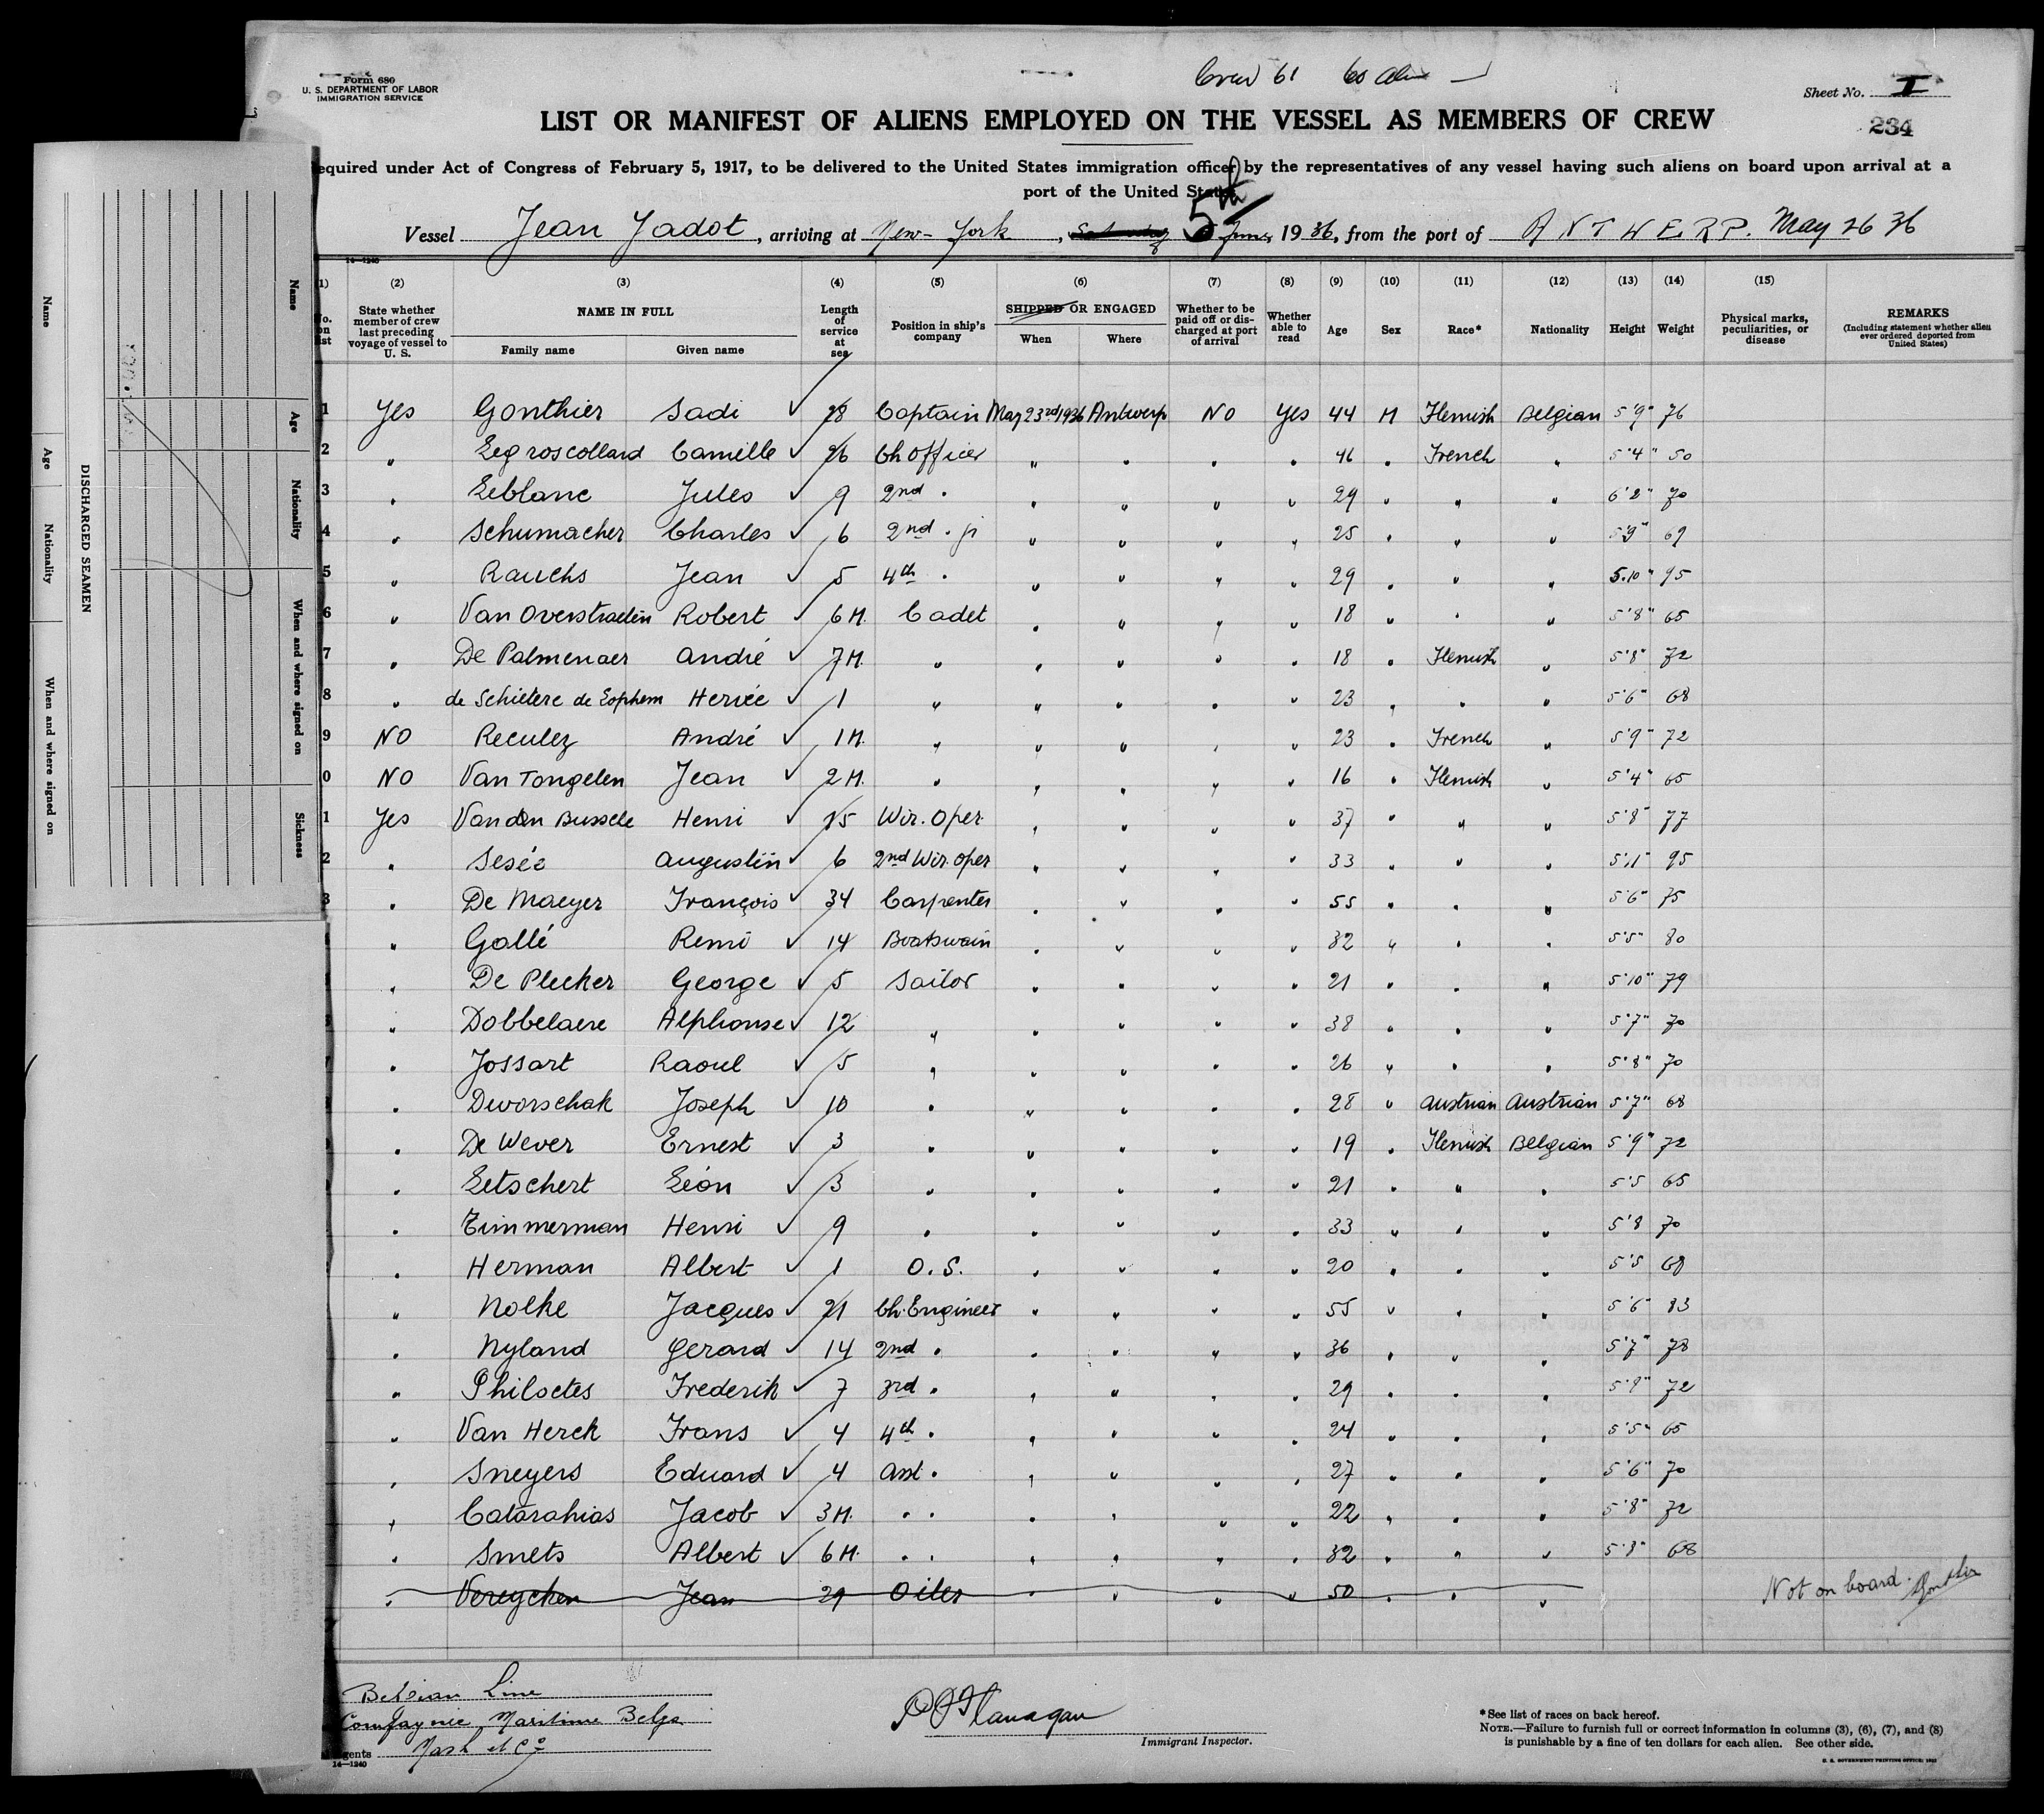 Form 680
U. S. DEPARTMENT OF LABOR
IMMIGRATION SERVICE
Crew 61 60 Alien
Sheet No. I
234
LIST OR MANIFEST OF ALIENS EMPLOYED ON THE VESSEL AS MEMBERS OF CREW
equired under Act of Congress of February 5, 1917, to be delivered to the United States immigration officer by the representatives of any vessel having such aliens on board upon arrival at a
port of the United States
Vessel Jean Jadot, arriving at New-York, 5th June, 1936, from the port of ANTWERP. May 26 36
14—1240
(1) (2) (3) (4) (5) (6) (7) (8) (9) (10) (11) (12) (13) (14) (15)
No. on list
State whether member of crew last preceding voyage of vessel to U. S.
NAME IN FULL
Family name Given name
Length of service at sea
Position in ship's company
SHIPPED OR ENGAGED
When Where
Whether to be paid off or discharged at port of arrival
Whether able to read
Age Sex Race* Nationality Height Weight
Physical marks, peculiarities, or disease
REMARKS
(Including statement whether alien ever ordered deported from United States)
1 Yes Gonthier Sadi 28 Captain May 23rd 1936 Antwerp NO Yes 44 M Flemish Belgian 5'9" 76
2 " Legroscollard Camille 26 Ch officer " " " " 46 " French " 5'4" 50
3 " Leblanc Jules 9 2nd " " " " " 29 " " " 6'2" 70
4 " Schumacher Charles 6 2nd " jr " " " " 25 " " " 5'9" 69
5 " Rauchs Jean 5 4th " " " " " 29 " " " 5.10" 95
6 " Van Overstraeten Robert 6 M. Cadet " " " " 18 " " " 5'8" 65
7 " De Palmenaer André 7 M. " " " " " 18 " Flemish " 5'8" 72
8 " de Schietere de Lophem Hervée 1 " " " " " 23 " " " 5'6" 68
9 NO Reculez André 1 M. " " " " " 23 " French " 5'9" 72
0 NO Van Tongelen Jean 2 M. " " " " " 16 " Flemish " 5'4" 65
1 Yes Vanden Bussele Henri 15 Wir. Oper. " " " " 37 " " " 5'8" 77
2 " Sesée Augustin 6 2nd Wir. oper " " " " 33 " " " 5'11" 95
3 " De Maeyer François 34 Carpenter " " " " 55 " " " 5'6" 75
" Gallé Remi 14 Boatswain " " " " 32 " " " 5'5" 80
" De Plecker George 5 Sailor " " " " 21 " " " 5'10" 79
" Dobbelaere Alphonse 12 " " " " " 38 " " " 5'7" 70
" Jossart Raoul 5 " " " " " 26 " " " 5'8" 70
" Dworschak Joseph 10 " " " " " 28 " Austrian Austrian 5'7" 68
" De Wever Ernest 3 " " " " " 19 " Flemish Belgian 5'9" 72
" Letschert Léon 3 " " " " " 21 " " " 5'5 65
" Timmerman Henri 9 " " " " " 33 " " " 5'8 70
" Herman Albert 1 O.S. " " " " 20 " " " 5'5 68
" Nolke Jacques 21 Ch. Engineer " " " " 55 " " " 5'6" 83
" Nyland Gerard 14 2nd " " " " " 36 " " " 5'7" 78
" Philoctes Frederik 7 3rd " " " " " 29 " " " 5'9" 72
" Van Herck Frans 4 4th " " " " " 24 " " " 5'5" 65
" Sneyers Eduard 4 Asst " " " " " 27 " " " 5'6" 70
" Catarahias Jacob 3 M. " " " " " " 22 " " " 5'8" 72
" Smets Albert 6 M. " " " " " " 32 " " " 5'8" 68
" Vereycken Jean 29 Oiler " " " " 50 " " " Not on board. Gonthier
Belgian Line
Compagnie Maritime Belge
Agents Nash et Co
14—1240
Flanagan
Immigrant Inspector.
*See list of races on back hereof.
NOTE.—Failure to furnish full or correct information in columns (3), (6), (7), and (8)
is punishable by a fine of ten dollars for each alien. See other side.
U. S. GOVERNMENT PRINTING OFFICE
DISCHARGED SEAMEN
Name Age Nationality When and where signed on
Name Age Nationality When and where signed on Sickness